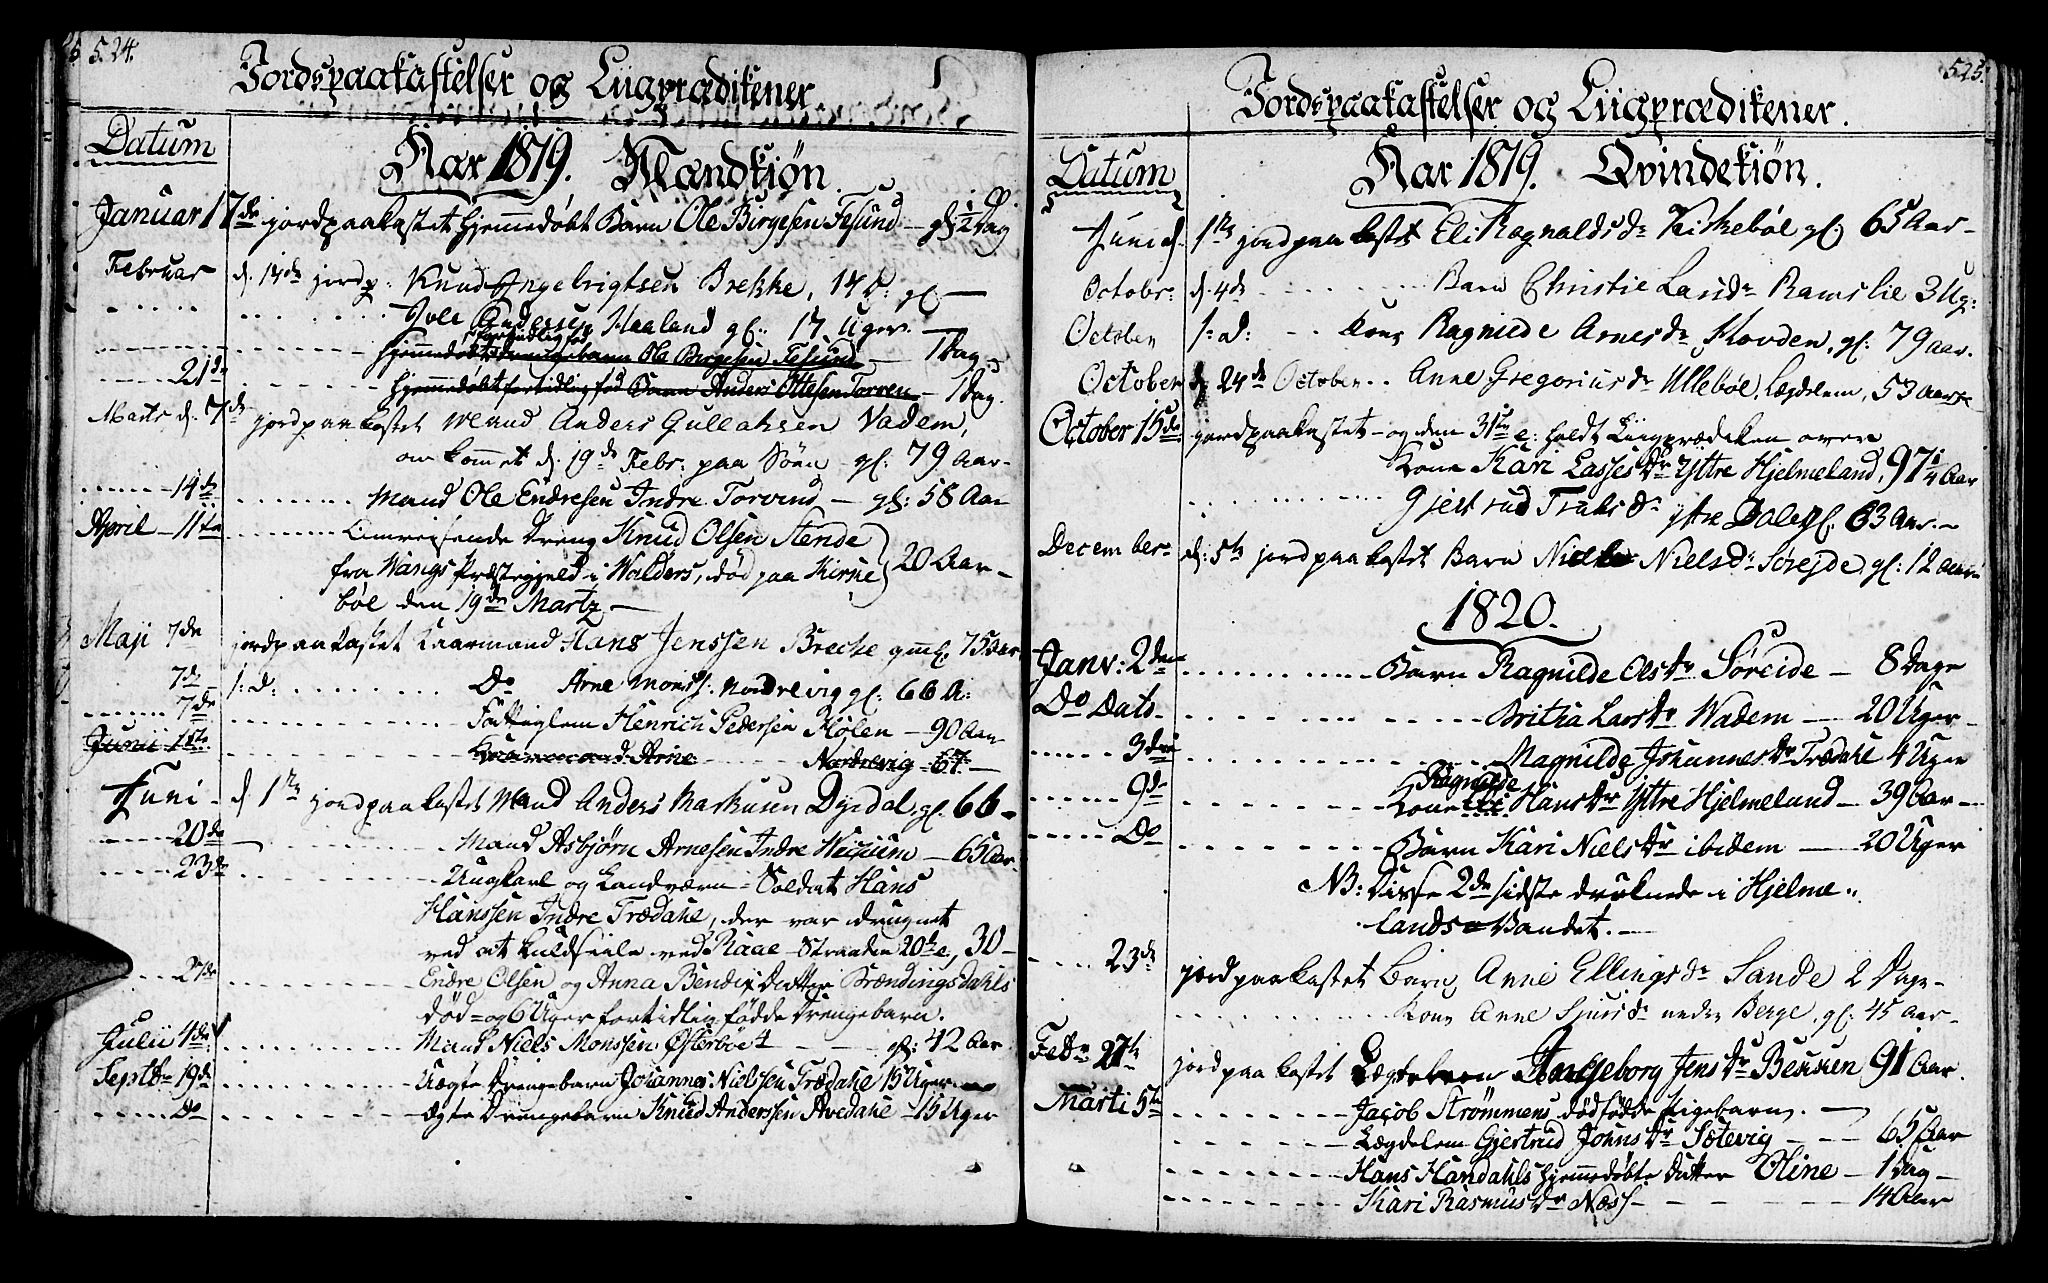 524.
Jordspaakastelser og Liigprædikener
Datum
Aar 1819. Mandkiøn.
Januar 17de jordpaakastet hjemmedøbt Barn Ole Birgesen Tesund — gl. 1/2 Dag
Februar d. 14de jordp: Knud Ingebrigtsen Brekke, 14 D: gl —
Andersen Haaland gl: 17 Uger. —
hjemmedøbt Drengebarn Ole Birgesen Tesund — 1 Dag
21de hjemmedøbt fortidlig fød Barn Anders Ottesen Torven — 1 Dag.
Marts d. 7de jordpaakastet Mand Anders Gullaksen Vadem,
omkommet d. 19de Febr: paa Søen gl. 79 Aar
14de Mand Ole Endresen Indre Torvund — gl: 58 Aar
April — 11te Omreisende Dreng Knud Olsen Stende
fra Wangs Præstegjeld i Walders, død paa Kirke 20 Aar —
bøe den 19de Martz —
Maji 7de jordpaakastet Kaarmand Hans Jenssen Breche gml. 75 Aar
7de s: d: Do Arne Monss: Nordrevig gl: 66 A:
7de Fattiglem Henrich Pedersen Hølen — 90 Aar
Junii 1ste Kaarmand Arne Nordrevig 67 —
Juni — d 1ste jordpaakastet Mand Anders Markusen Dyrdal gl. 66 —
20de Mand Asbjørn Arnesen Indre — 65 Aar
23de Ungkarl og Landværn-Soldat Hans
Hanssen Indre Trædahl, der var druknet
ved at kuldseile ved Raae-Stranden 20de, 30 —
27de Endre Olsen og Anna Bendix Datter Brændingsdahls
død- og 6 Uger fortidlig fødde Drengebarn.
Julii 4de Mand Niels Monssen Østerbøe — gl: 42 Aar
Septbr 19de Uægte Drengebarn Johannes Nielssen Trædahl 15 Uger
Do ægte Drengebarn Knud Anderssen Avedahl — 15 Uger
525.
Jordspaakastelser og Liigprædikener.
Datum
Aar 1819. Qvindekiøn.
Juni d. 1ste jordpaakastet Eli Ragnaldsdr Kirkebøe gl. 65 Aar —
Octobr: d. 4de Barn Christie Larsdr Ramslie 3 Ug:
October s: d: Kone Ragnilde Arnesdr Hovden, gl: 79 Aar.
October d. 24de October Anne Gregoriusdr Ullebøe, Lægdslem, 53 Aar
October 15de jordpaakastet — og den 31te e: holdt Liigprædiken over
Kone Kari Lassesdr Yttre Hjelmeland, 97 1/4 Aar
Gjertrud Truls dr ytre Dale gl. 63 Aar —
December d: 5te jordpaakastet Barn Nielsdr Søreide, gl: 12 Aar
1820.
Janv: 2den Barn Ragnilde Olsdr Søreide — 8 Dage
Do Dato Britha Larsdr Wadem — 20 Uger —
3die Magnilde Johannesdr Trædahl 4 Uger
Ragnilde
9de Kone Hansdr Yttre Hjelmeland — 39 Aar —
Do Barn Kari Nielsdr ibidem — 20 Uger
NB: Disse 2de sidste druknede i Hjelme-
lands-Vandet. —
23de jordpaakastet Barn Anne Ellingsdr Sande 2 Dage —
Kone Anne Sjursdr nedre Berge, gl. 45 Aar —
Febr 27de jordpaakastet Ingeborg Jensdr Bekken 91 Aar.
Marti 5te Jacob Strømmens dødfødde Pigebarn. —
Lægdslem Gjertrud Johnsdr Sætevig — 65 Aar
Hans Handahls hjemmedøbte Datter Oline — 1 Dag —
Kari Rasmusdr Næss — 14 Aar